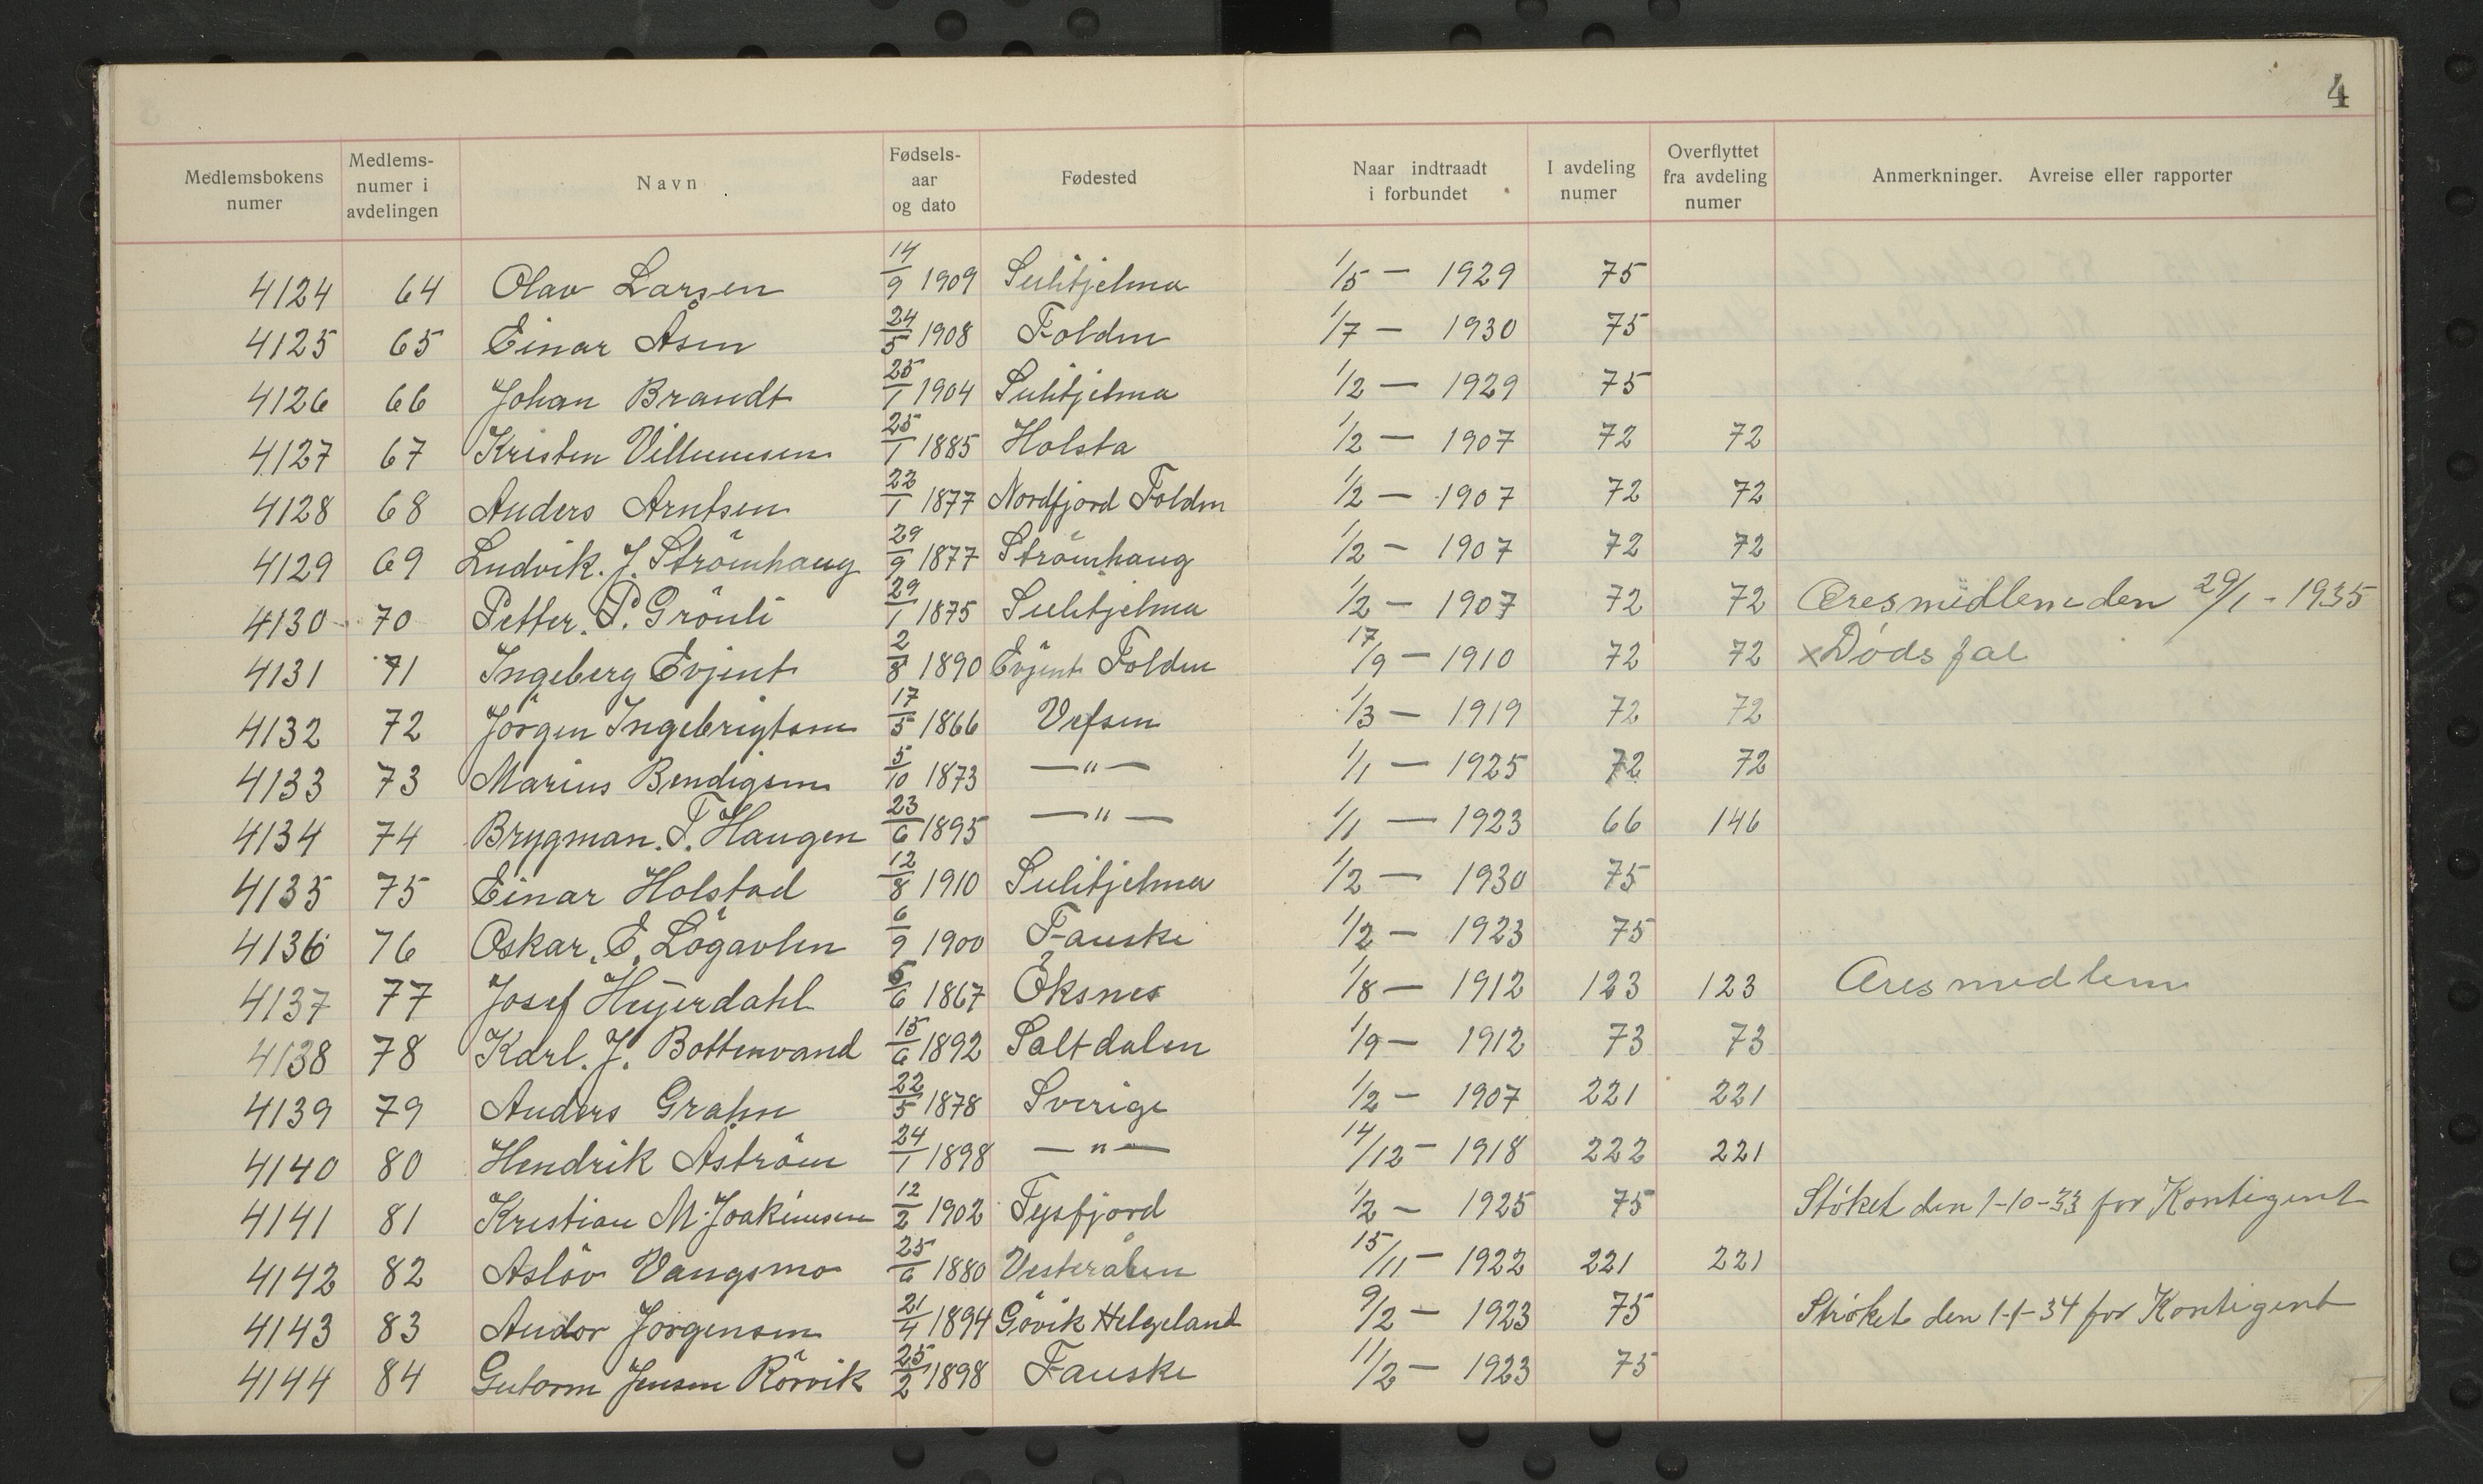 4
Medlemsbokens numer | Medlems-numer i avdelingen | Navn | Fødsels-aar og dato | Fødested | Naar indtraadt i forbundet | I avdeling numer | Overflyttet fra avdeling numer | Anmerkninger. Avreise eller rapporter
4124 64 Olav Larsen 14/9 1909 Sulitjelma 1/5 — 1929 75
4125 65 Einar Åsen 24/5 1908 Folden 1/7 — 1930 75
4126 66 Johan Brandt 25/1 1904 Sulitjelma 1/2 — 1929 75
4127 67 Kristen Villumsen 25/1 1885 Holsta 1/2 — 1907 72 72
4128 68 Anders Arntsen 22/1 1877 Nordfjord Folden 1/2 — 1907 72 72
4129 69 Ludvik. J. Strömhaug 29/9 1877 Strömhaug 1/2 — 1907 72 72
4130 70 Petter. P. Grönli 29/1 1875 Sulitjelma 1/2 — 1907 72 72 Æresmedlem den 29/1 - 1935
4131 71 Ingeberg Evjent 2/8 1890 Evjent Folden 17/9 — 1910 72 72 x Dødsfal
4132 72 Jörgen Ingebrigtsen 17/5 1866 Vefsen 1/3 — 1919 72 72
4133 73 Marius Bendigsen 5/10 1873 — " — 1/1 — 1925 72 72
4134 74 Brygman. T. Haugen 23/6 1895 — " — 1/1 — 1923 66 146
4135 75 Einar Holstad 12/8 1910 Sulitjelma 1/2 — 1930 75
4136 76 Oskar. E. Lögavlen 6/9 1900 Fauske 1/2 — 1923 75
4137 77 Josef Heyerdahl 5/6 1867 Öksnes 1/8 — 1912 123 123 Æresmedlem
4138 78 Karl. J. Bottenvand 15/6 1892 Saltdalen 1/9 — 1912 73 73
4139 79 Anders Grahn 22/5 1878 Sverige 1/2 — 1907 221 221
4140 80 Hendrik Åström 24/1 1898 — " — 14/12 — 1918 222 221
4141 81 Kristian M. Joakimsen 12/2 1902 Tysfjord 1/2 — 1925 75 Støket den 1-10-33 for Kontigent
4142 82 Aslöv Vangsmo 25/6 1880 Vesterålen 15/11 — 1922 221 221
4143 83 Andor Jorgensen 21/4 1894 Gövik Helgeland 9/2 — 1923 75 Strøket den 1-1-34 for Kontigent
4144 84 Gutorm Jensen Rörvik 25/2 1898 Fauske 11/2 — 1923 75